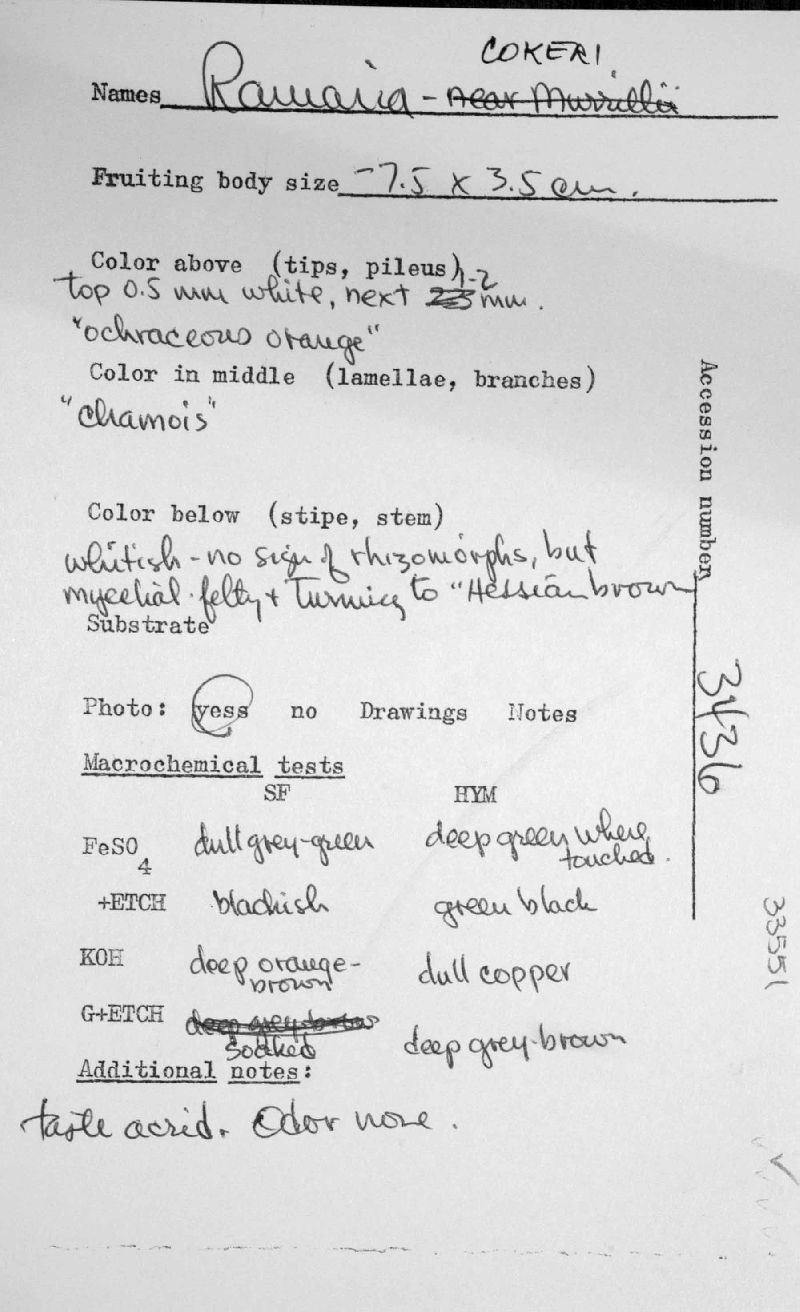 COKERI
Names Ramaria - near Murrillii
Fruiting body size -7.5 x 3.5 cm.
Color above (tips, pileus)
1-2
top 0.5 mm white, next mm.
"ochraceous orange"
Color in middle (lamellae, branches)
"chamois"
Color below (stipe, stem)
whitish - no sign of rhizomorphs, but
mycelial felty + turning to "Hessian brown
Substrate
Photo: yess no Drawings Notes
Macrochemical tests
SF HYM
FeSO4 dull grey-green deep green where
touched.
+ETCH blackish green black
KOH deep orange-
brown dull copper
G+ETCH
soaked deep grey-brown
Additional notes:
taste acrid. Odor none.
Accession number 3436
33551